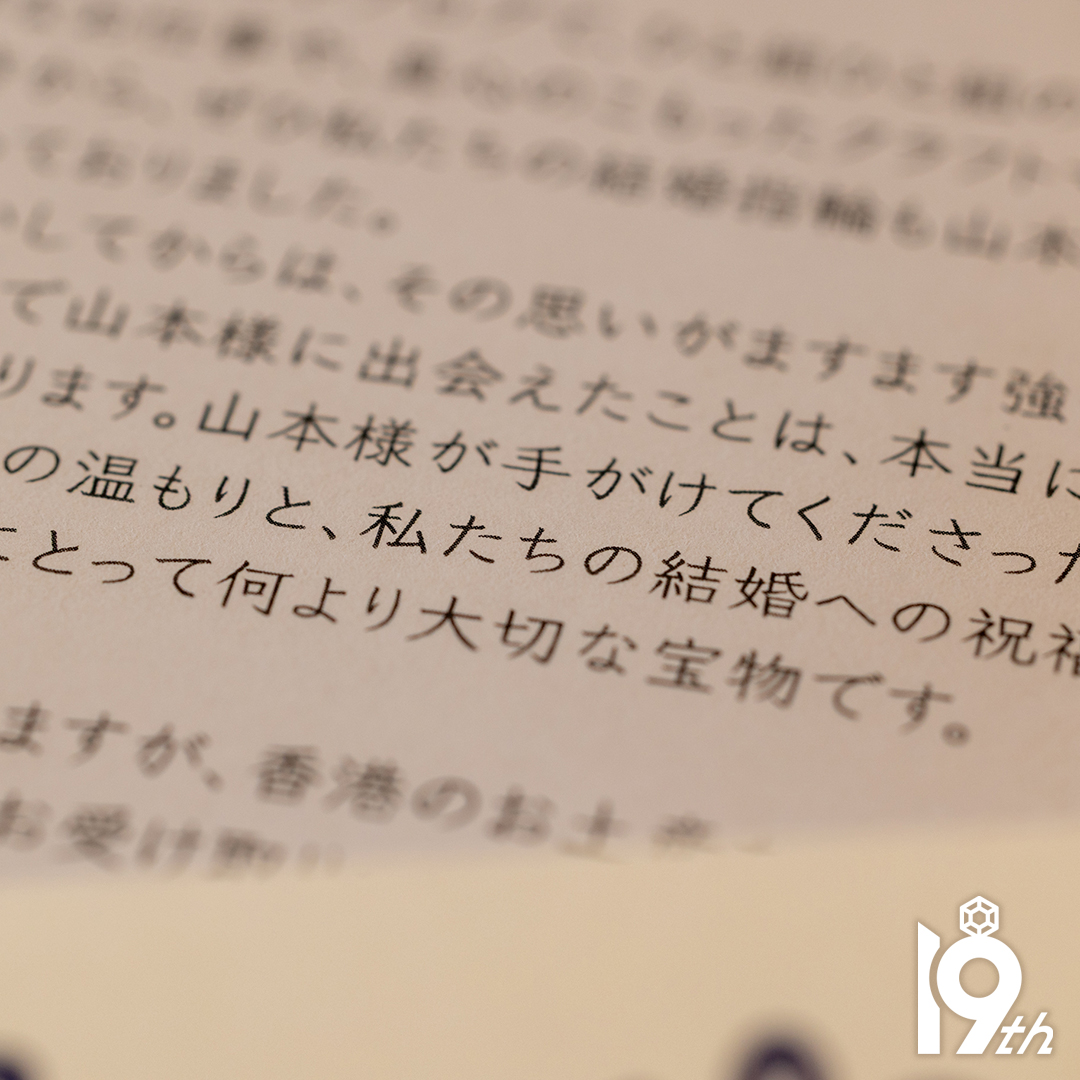 心のこもったクラフト
ぜひ私たちの結婚指輪も山本
ておりました。
してからは、その思いがますます強
て山本様に出会えたことは、本当に
ります。山本様が手がけてくださった
の温もりと、私たちの結婚への祝福
にとって何より大切な宝物です。
ますが、香港のお土産
お受け取り
19th